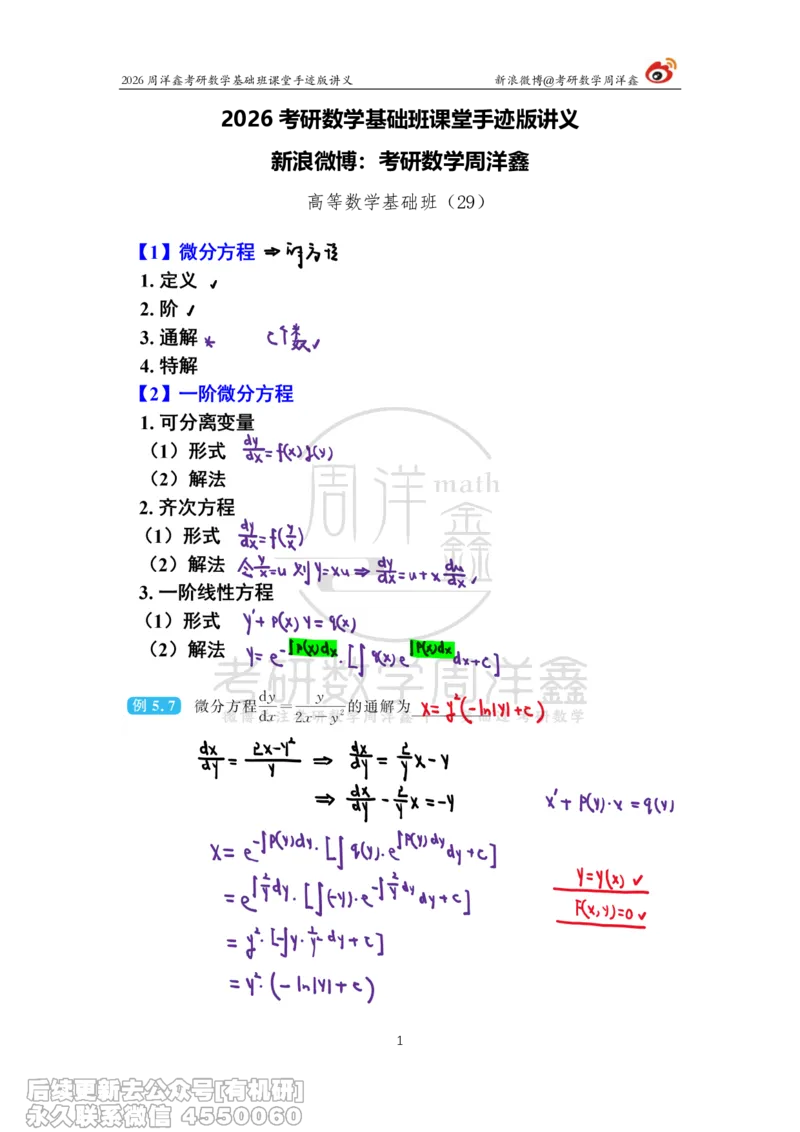 2026 周洋鑫考研数学基础班课堂手迹版讲义 新浪微博@考研数学周洋鑫
2026 考研数学基础班课堂手迹版讲义
新浪微博：考研数学周洋鑫
高等数学基础班（29）
【1】微分方程 ⇒
1. 定义 ✓
2. 阶 ✓
3. 通解 * C个数✓
4. 特解
【2】一阶微分方程
1. 可分离变量
（1）形式 dy/dx=f(x)g(y)
（2）解法
2. 齐次方程
（1）形式 dy/dx=f(y/x)
（2）解法 令y/x=u 则y=xu⇒dy/dx=u+x du/dx,
3. 一阶线性方程
（1）形式 y'+p(x)y=q(x)
（2）解法 y=e^{-∫p(x)dx}·[∫q(x)e^{∫p(x)dx}dx+c]
周洋鑫math
考研数学周洋鑫
例 5.7 微分方程dy/dx=y/(2x-y²)的通解为 x=y²(-ln|y|+c)
dx/dy=(2x-y²)/y ⇒ dx/dy=2/y x-y
⇒ dx/dy-2/y x=-y x'+p(y)·x=q(y)
x=e^{-∫p(y)dy}·[∫q(y)·e^{∫p(y)dy}dy+c]
=e^{∫2/y dy}·[∫(-y)·e^{-∫2/y dy}dy+c] y=y(x) ✓
F(x,y)=0 ✓
=y²·[-∫y·1/y² dy+c]
=y²·(-ln|y|+c)
1
后续更新去公众号[有机研]
永久联系微信 4550060